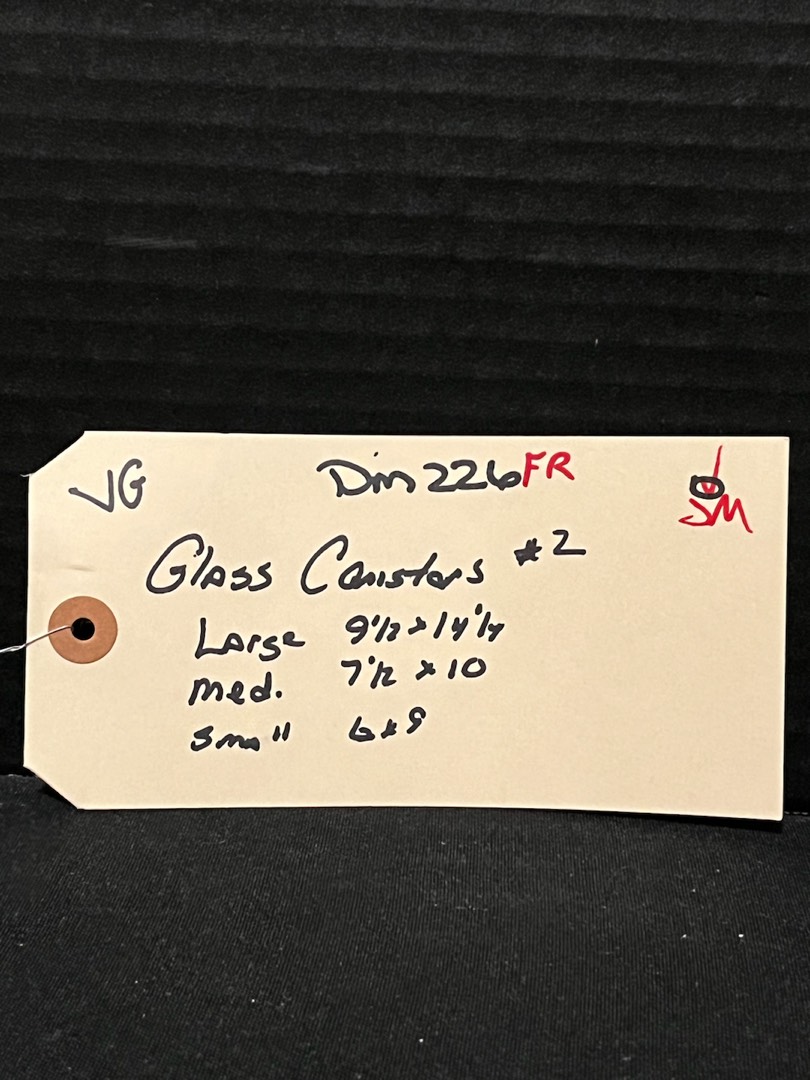 VG Dm226FR
JM
Glass Canisters #2
Large 9 1/2 x 14 1/4
med. 7 1/2 x 10
small 6x9